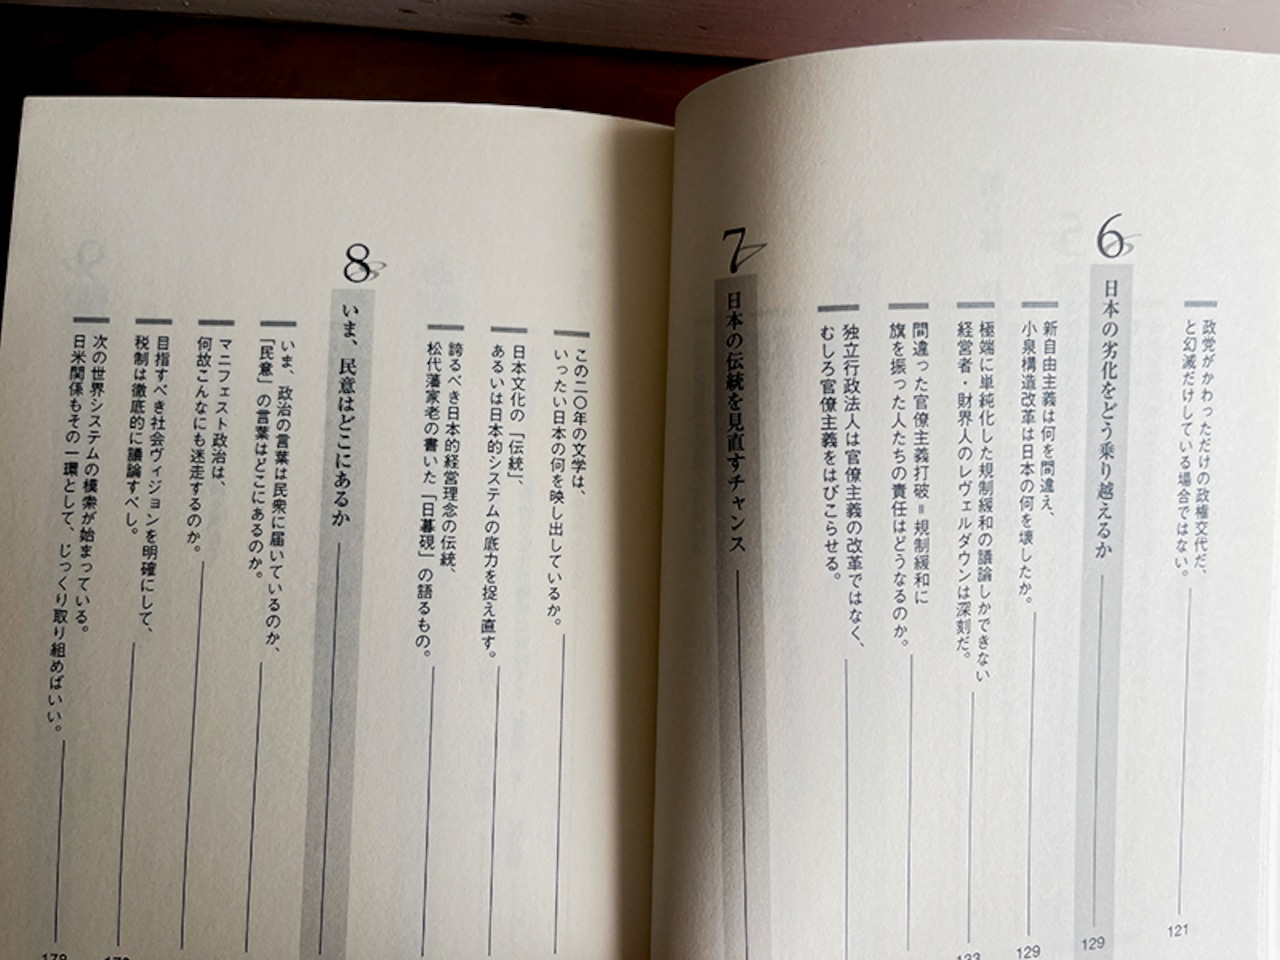 政党がかわっただけの政権交代だ、
と幻滅だけしている場合ではない。
121
6
日本の劣化をどう乗り越えるか
129
新自由主義は何を間違え、
小泉構造改革は日本の何を壊したか。
129
極端に単純化した規制緩和の議論しかできない
経営者・財界人のレヴェルダウンは深刻だ。
133
間違った官僚主義打破＝規制緩和に
旗を振った人たちの責任はどうなるのか。
独立行政法人は官僚主義の改革ではなく、
むしろ官僚主義をはびこらせる。
7
日本の伝統を見直すチャンス
この二〇年の文学は、
いったい日本の何を映し出しているか。
日本文化の「伝統」、
あるいは日本的システムの底力を捉え直す。
誇るべき日本的経営理念の伝統、
松代藩家老の書いた「日暮硯」の語るもの。
8
いま、民意はどこにあるか
いま、政治の言葉は民衆に届いているのか、
「民意」の言葉はどこにあるのか。
マニフェスト政治は、
何故こんなにも迷走するのか。
目指すべき社会ヴィジョンを明確にして、
税制は徹底的に議論すべし。
次の世界システムの模索が始まっている。
日米関係もその一環として、じっくり取り組めばいい。
178